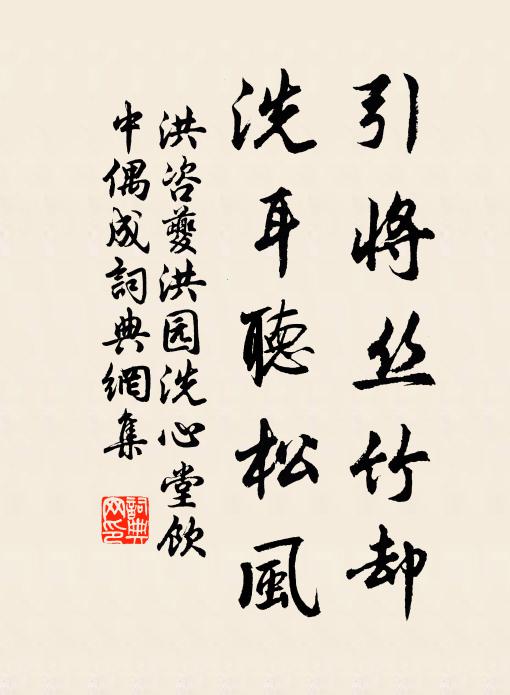 引将丝竹却
洗耳聽松風
洪咨夔洪园洗心堂飲
中偶成詞典網集
詞典
网印